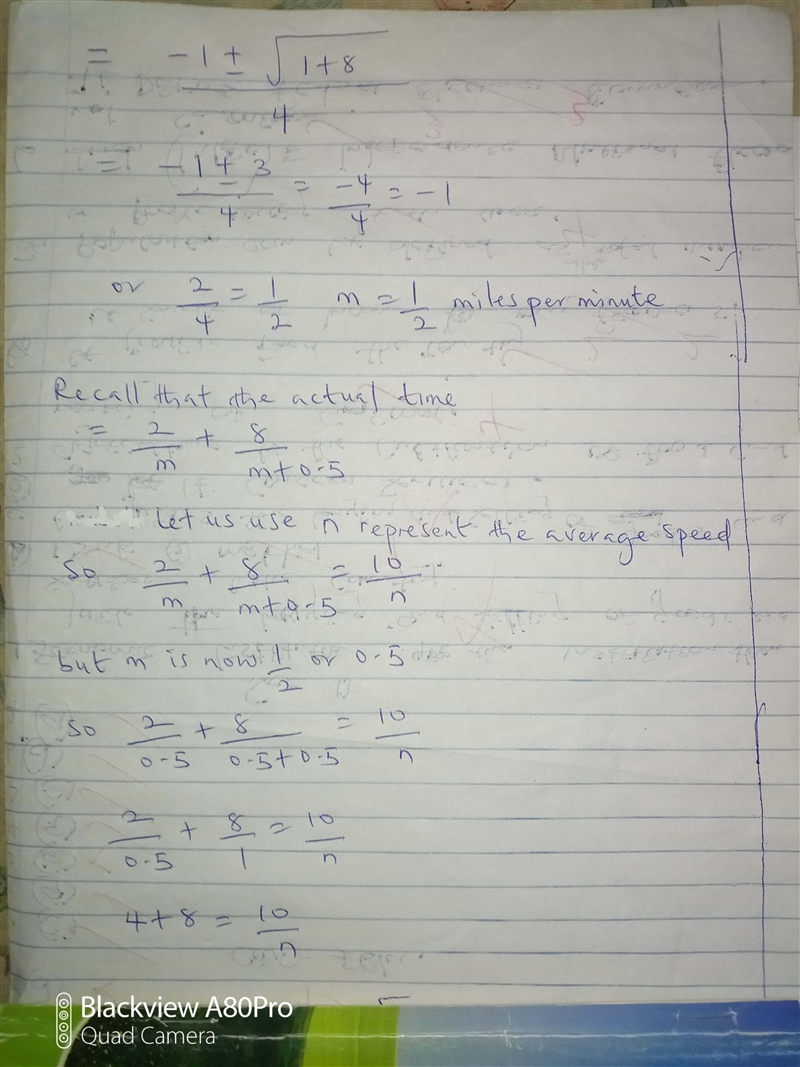 = -1 ± √(1+8) / 4
= -1 ± 3 / 4 = -4/4 = -1
or 2/4 = 1/2 m = 1/2 miles per minute
Recall that the actual time
= 2/m + 8/(m+0.5)
Let us use n represent the average speed
So 2/m + 8/(m+0.5) = 10/n
but m is now 1/2 or 0.5
So 2/0.5 + 8/(0.5+0.5) = 10/n
2/0.5 + 8/1 = 10/n
4+8 = 10/n
Blackview A80Pro
Quad Camera